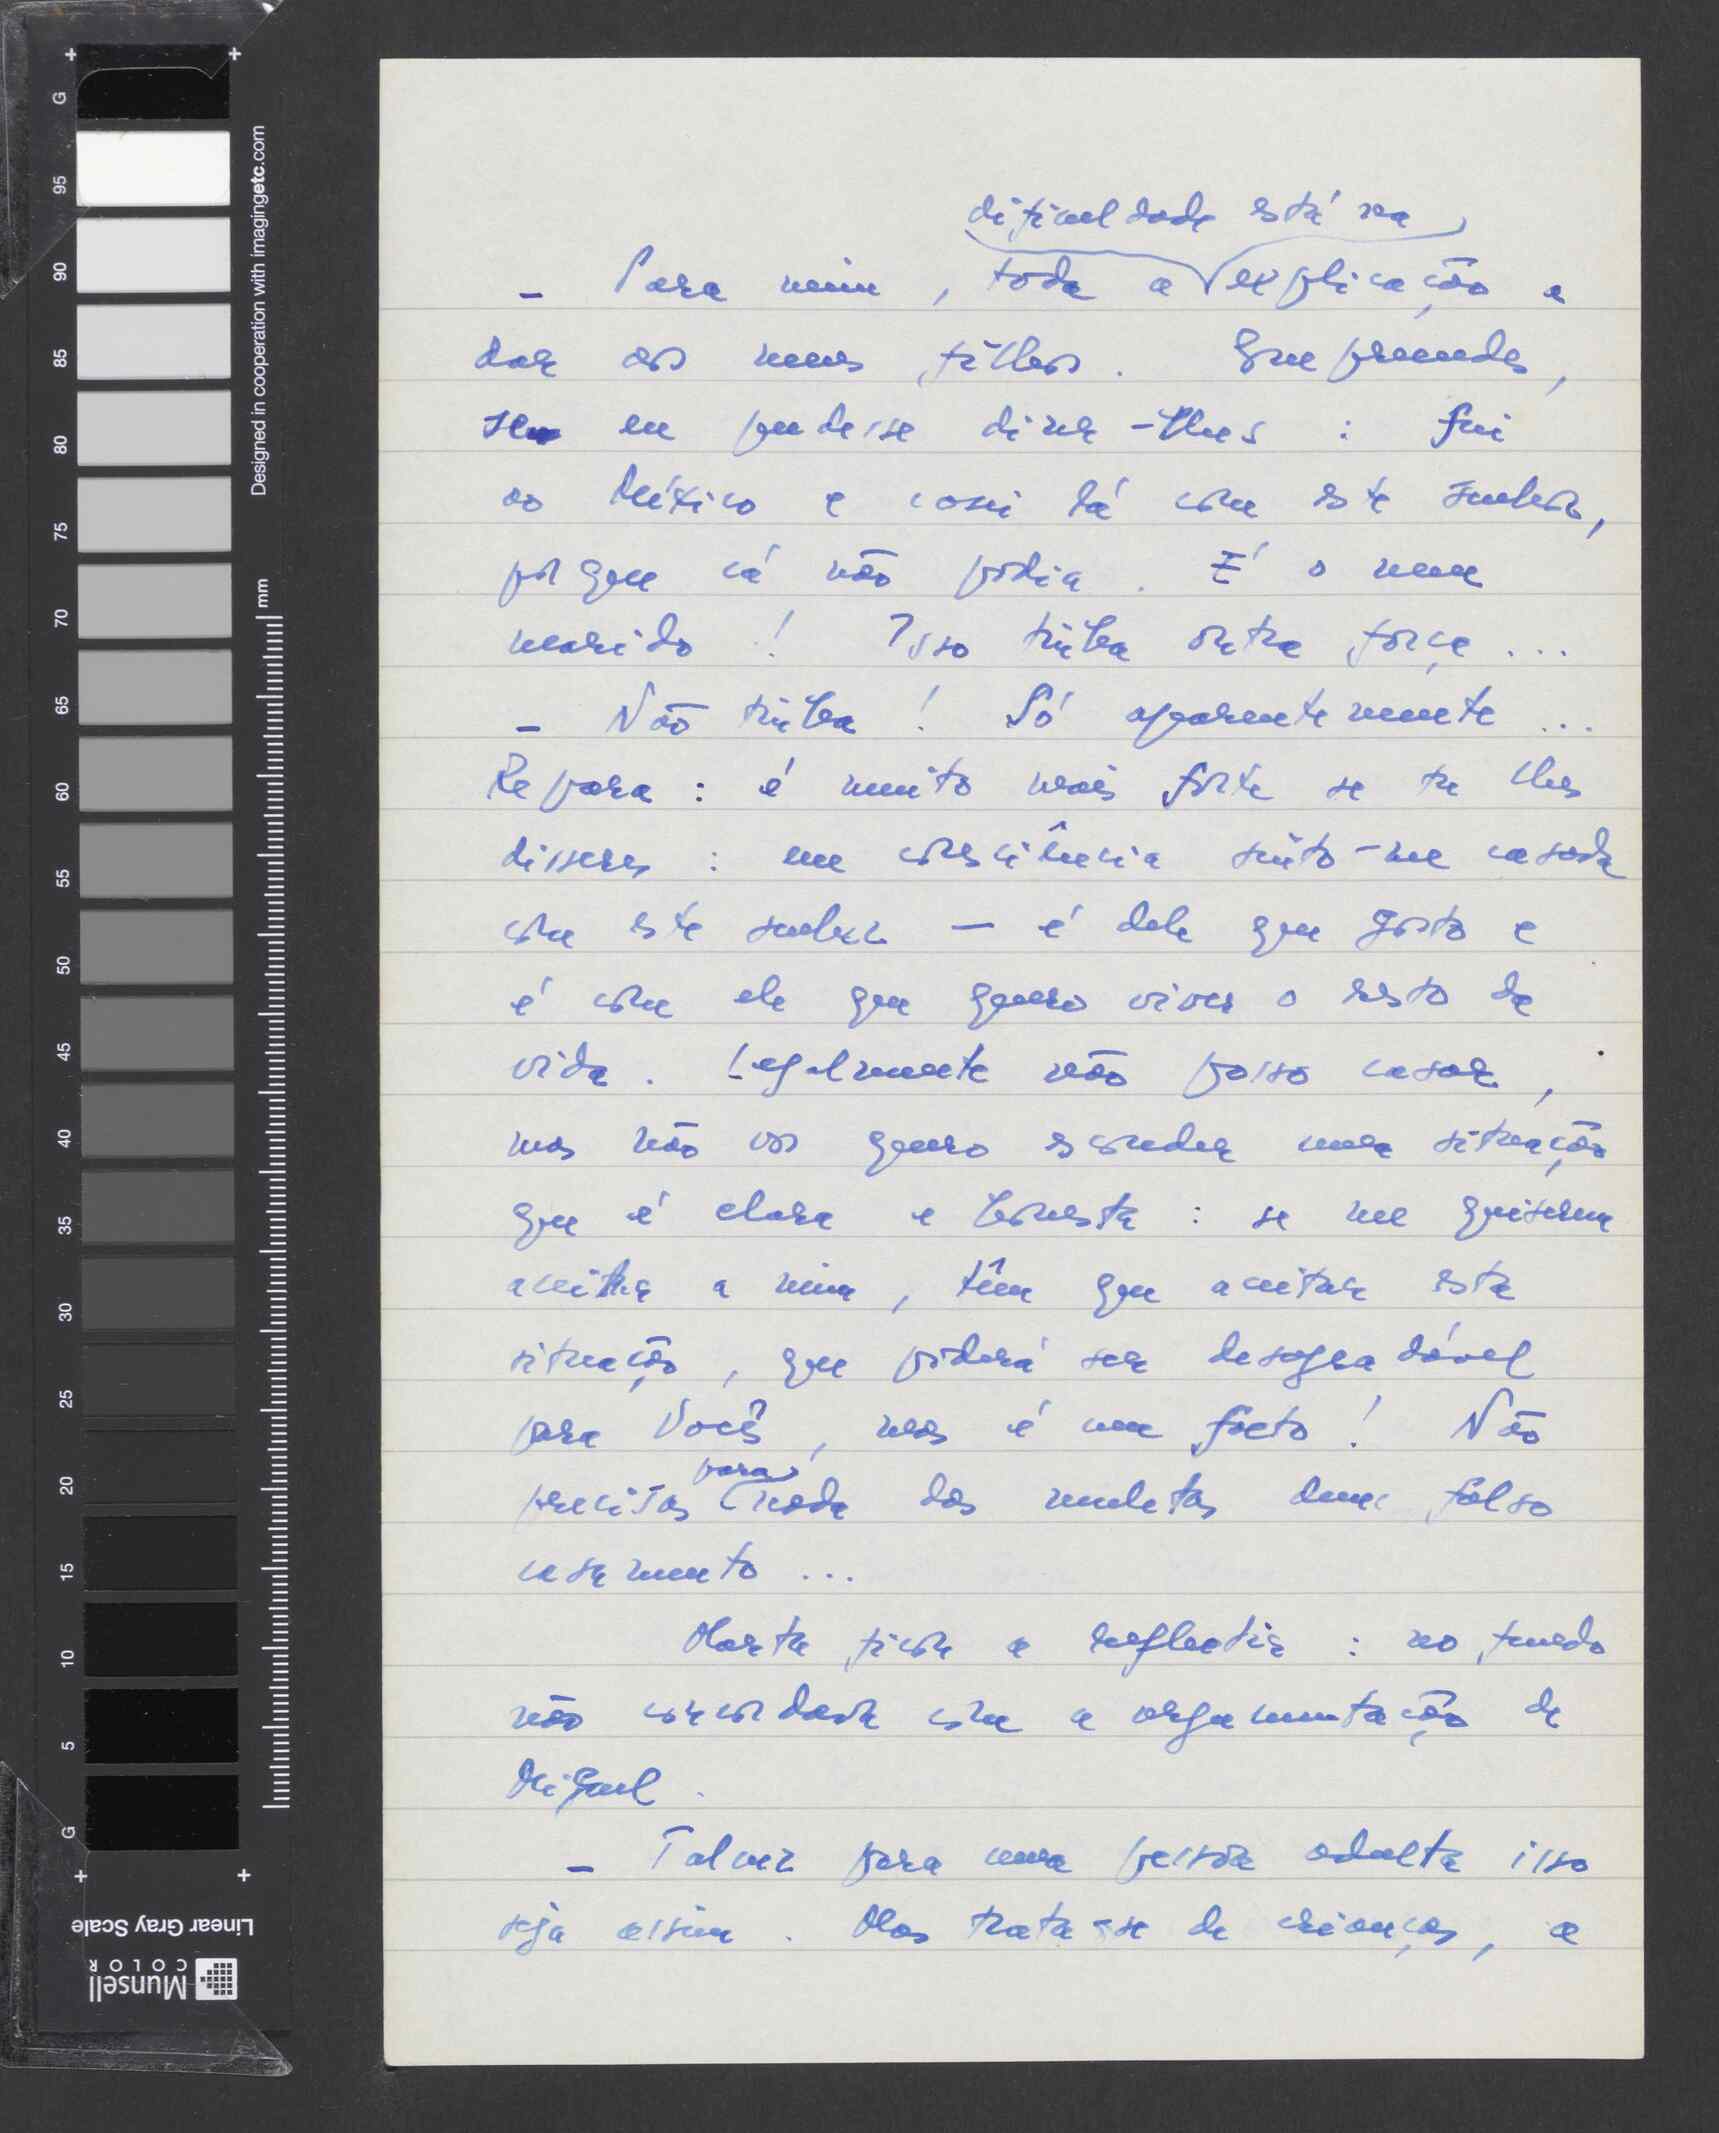 dificuldade está na
- Para mim, toda a explicação a
dar aos meus filhos. Compreendes,
se eu pudesse dizer-lhes: fui
ao México e casei lá com este senhor,
porque cá não podia. É o meu
marido! Isso tinha outra força...
- Não tinha! Só aparentemente...
Repara: é muito mais forte se tu lhes
disseres: em consciência sinto-me casada
com este senhor — é dele que gosto e
é com ele que quero viver o resto da
vida. Legalmente não posso casar,
mas não vos quero esconder uma situação
que é clara e honesta: se me quiserem
aceitar a mim, têm que aceitar esta
situação, que poderá ser desagradável
para Vocês, mas é um facto! Não
para
precisas nada das muletas dum falso
casamento...
Marta ficou a reflectir: no fundo
não concordava com a argumentação de
Miguel.
- Talvez para uma pessoa adulta isso
seja assim. Mas trata-se de crianças, a
Designed in cooperation with imagingetc.com
mm
G
95
90
85
80
75
70
65
60
55
50
45
40
35
30
25
20
15
10
5
G
Linear Gray Scale
Munsell
COLOR